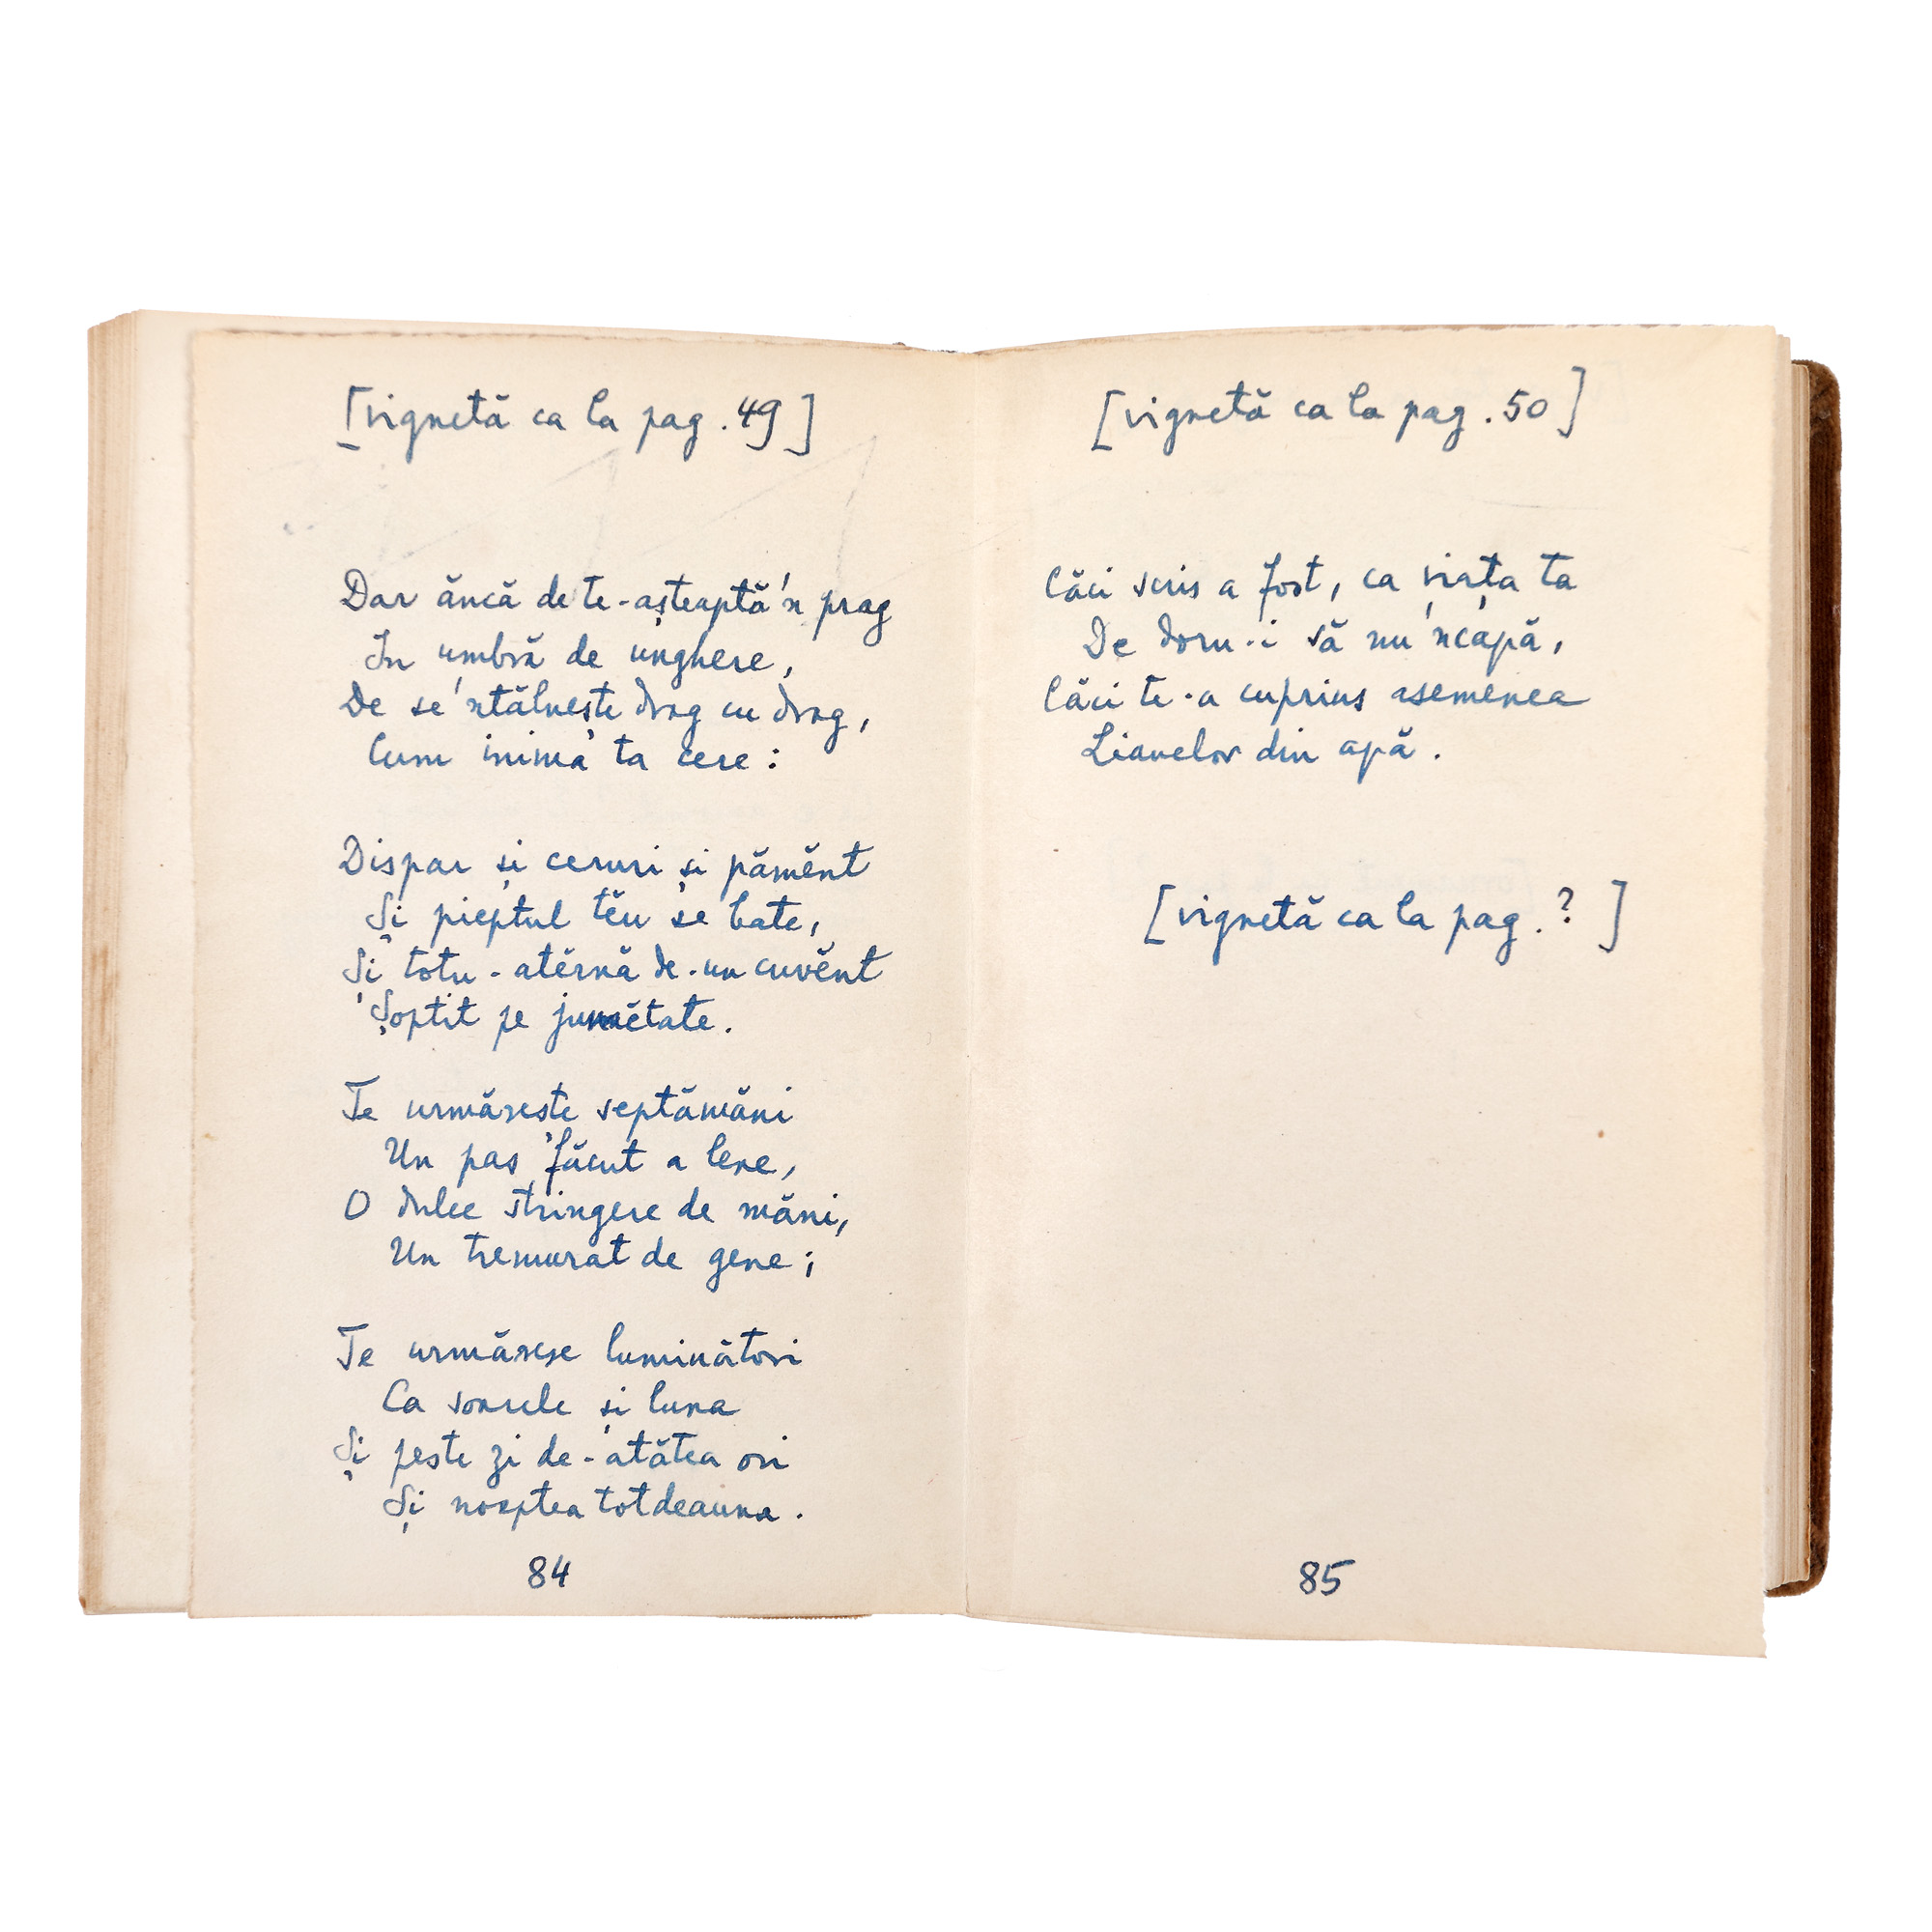 [vignetă ca la pag. 49]
Dar ăncă de te-așteaptă'n prag
In umbră de unghere,
De se'ntălnește drag cu drag,
Cum inima ta cere:
Dispar și ceruri și pămĕnt
Și pieptul tĕu se bate,
Și totu-atĕrnă de-un cuvĕnt
Șoptit pe jumĕtate.
Te urmărește septămăni
Un pas făcut a lene,
O dulce stringere de măni,
Un tremurat de gene;
Te urmăresc luminători
Ca soarele și luna
Și peste zi de-atătea ori
Și noaptea totdeauna.
84
[vignetă ca la pag. 50]
Căci scris a fost, ca viața ta
De doru-i să nu'ncapă,
Căci te-a cuprins asemenea
Lianelor din apă.
[vignetă ca la pag. ? ]
85